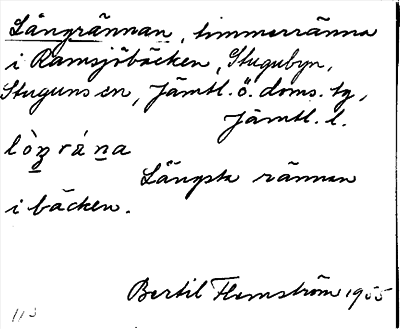 Långrännan, timmerränna
i Ramsjöbäcken, Stugubyn,
Stuguns sn, Jämtl. ö. doms. tg,
Jämtl. l.
lòŋ rá na
Längsta rännan
i bäcken.
Bertil Flemström 1955